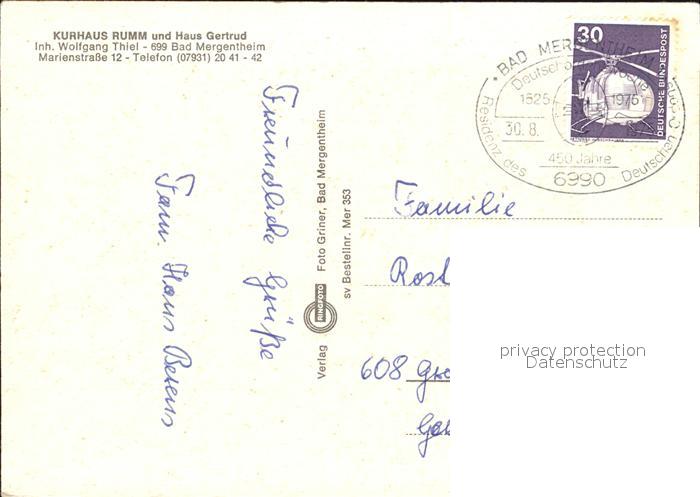 KURHAUS RUMM und Haus Gertrud
Inh. Wolfgang Thiel - 699 Bad Mergentheim
Marienstraße 12 - Telefon (07931) 20 41 - 42
Freundliche Grüße
Fam. Hans Berens
Verlag RINGFOTO Foto Griner, Bad Mergentheim
sv Bestellnr. Mer 353
30
DEUTSCHE BUNDESPOST
BAD MERGENTHEIM
1525 1975
30.8.
450 Jahre
Residenz des Deutschen Ordens
6990
Familie
Rost
608
privacy protection
Datenschutz